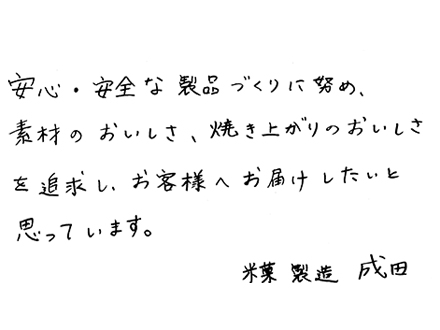 安心・安全な製品づくりに努め、
素材のおいしさ、焼き上がりのおいしさ
を追求し、お客様へお届けしたいと
思っています。
米菓製造 成田